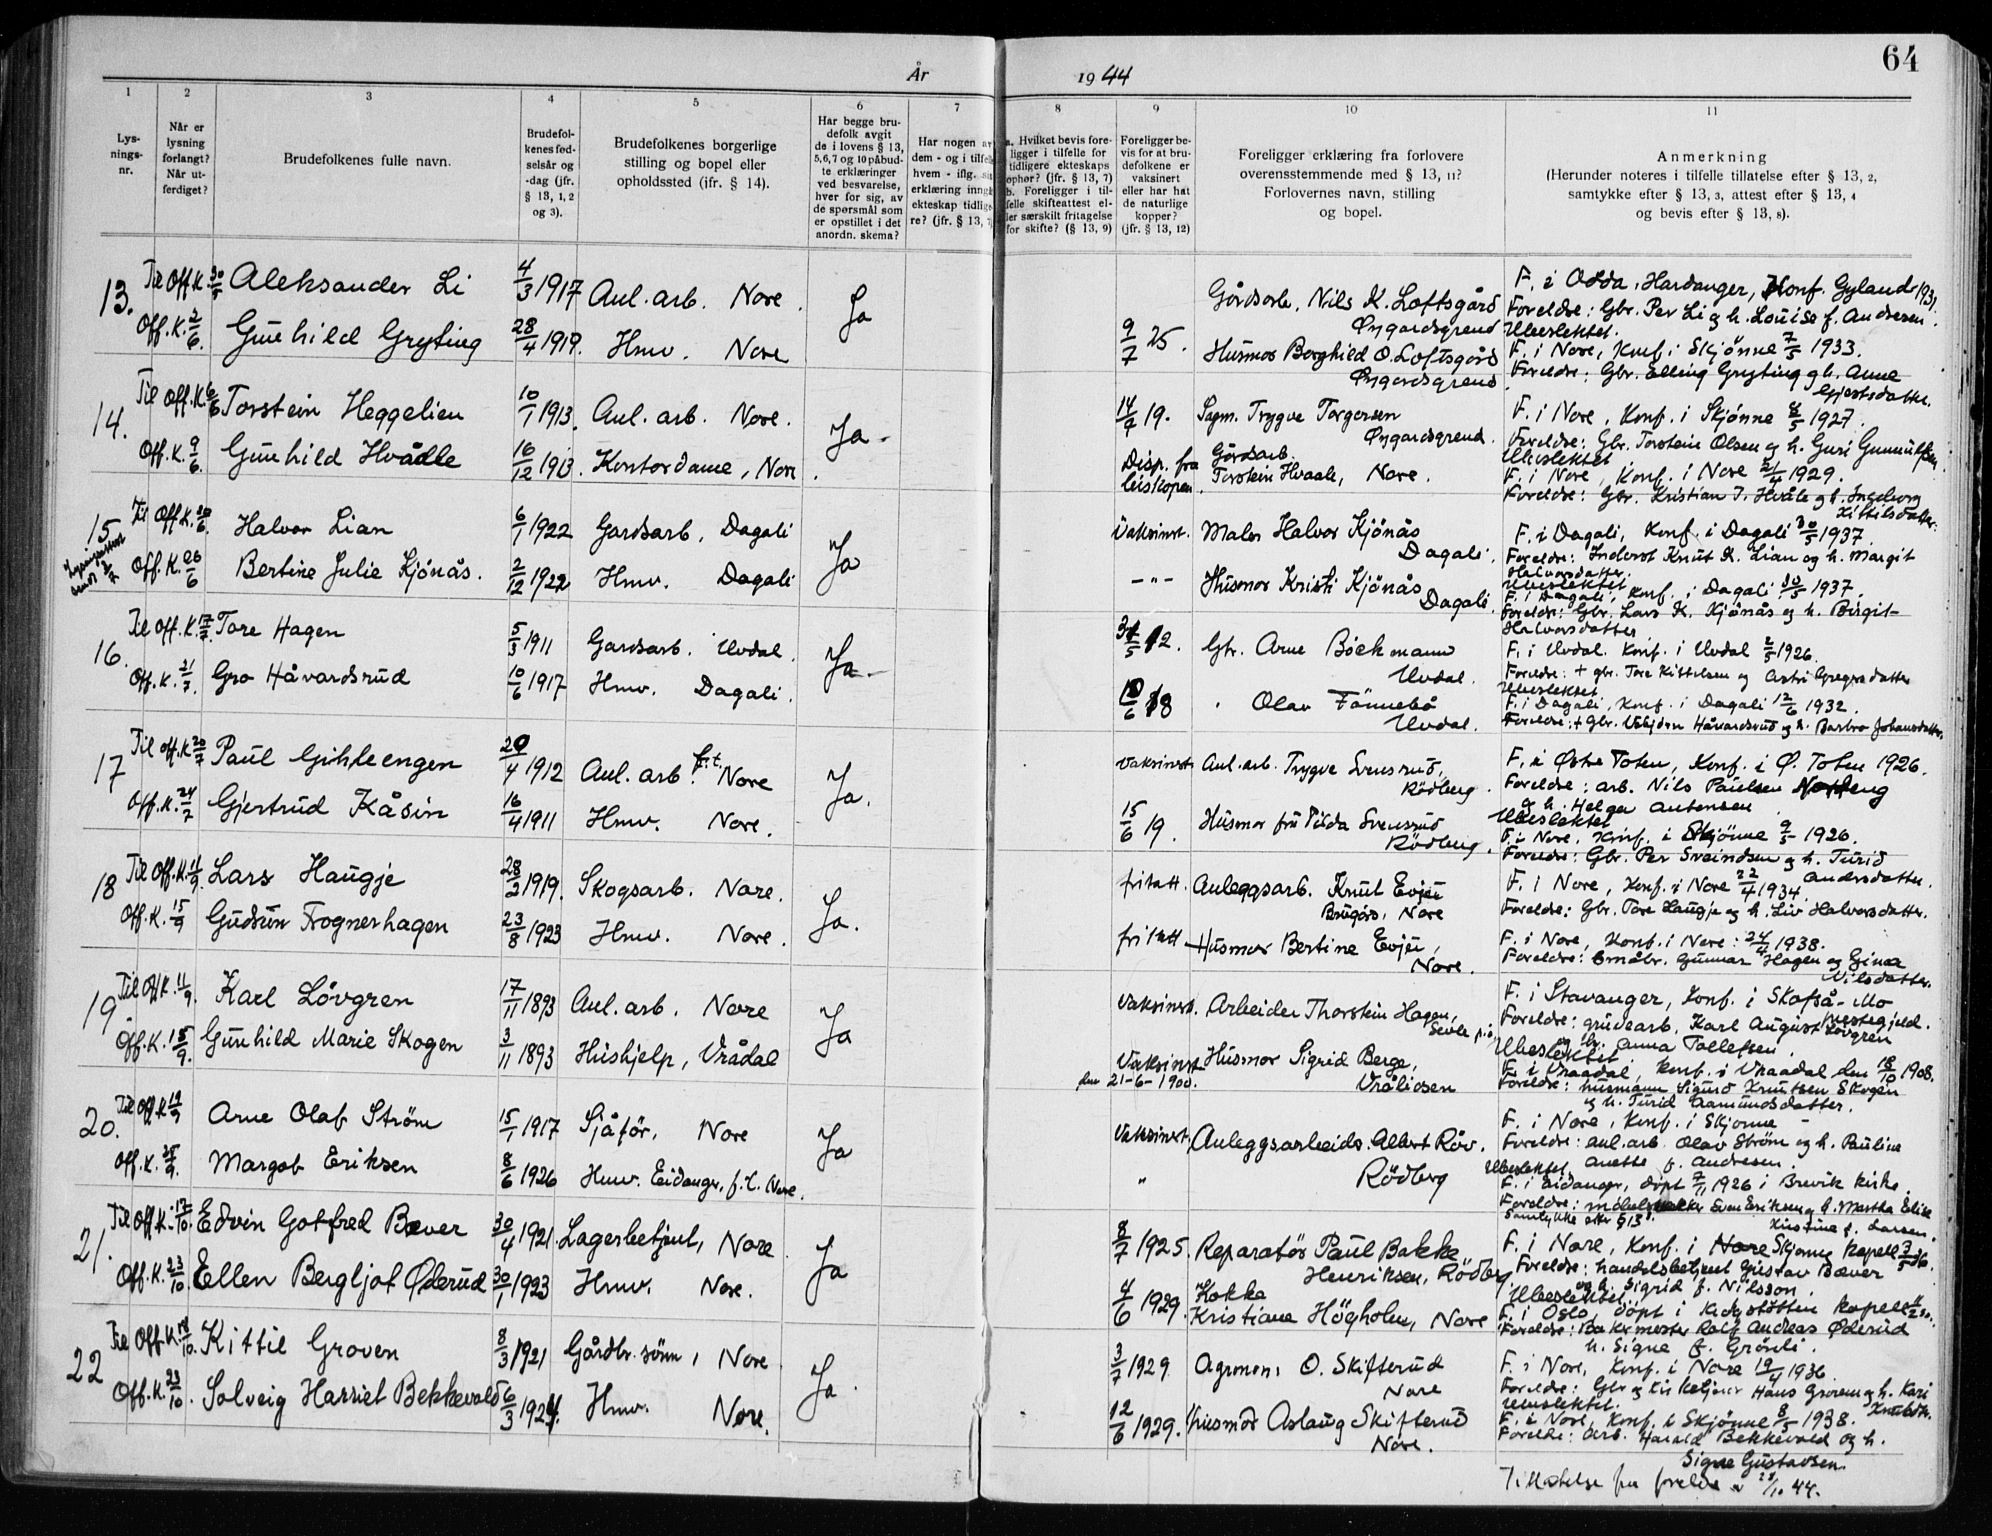 64
År 1944
1 2 3 4 5 6 7 8 9 10 11
Lys-
nings-
nr.
Når er
lysning
forlangt?
Når ut-
ferdiget?
Brudefolkenes fulle navn.
Brudefol-
kenes fød-
selsår og
-dag (jfr.
§ 13, 1, 2
og 3).
Brudefolkenes borgerlige
stilling og bopel eller
opholdssted (ifr. § 14).
Har begge bru-
defolk avgit
de i lovens § 13,
5,6,7 og 10 påbud-
te erklæringer
ved besvarelse,
hver for sig, av
de spørsmål som
er opstillet i det
anordn. skema?
Har nogen av
dem - og i tilfelle
hvem - iflg. sin
erklæring inngå
ekteskap tidlige-
re? (jfr. § 13, 7)
a. Hvilket bevis fore-
ligger i tilfelle for
tidligere ekteskaps
ophør? (jfr. § 13, 7)
b. Foreligger i til-
felle skifteattest el-
ler særskilt fritagelse
for skifte? (§ 13, 9)
Foreligger be-
vis for at bru-
defolkene er
vaksinert
eller har hat
de naturlige
kopper?
(jfr. § 13, 12)
Foreligger erklæring fra forlovere
overensstemmende med § 13, 11?
Forlovernes navn, stilling
og bopel.
Anmerkning
(Herunder noteres i tilfelle tillatelse efter § 13, 2,
samtykke efter § 13, 3, attest efter § 13, 4
og bevis efter § 13, 8).
13. Til Off.K. 30/5 Aleksander Li 4/3 1917 Anl.arb. Nore. Ja Gårdsarb. Nils K. Loftsgård
Øygardsgrend
F. i Odda, Hardanger, Konf. Gyland 1931
Foreldre: Gbr. Per Li og h. Louise f. Andresen.
Ubeslektet.
Off.K. 2/6. Gunhild Gryting 28/4 1919. Hmv. Nore 9/7 25. Husmor Borghild O. Loftsgård
Øygardsgrend
F. i Nore, Konf. i Skjønne 7/5 1933.
Foreldre: Gbr. Elling Gryting og h. Anne
Gjertsdatter.
14. Til Off.K. 6/6 Torstein Heggelien 10/1 1913. Anl. arb. Nore. Ja. 14/9 19. Sagm. Trygve Torgersen
Øygardsgrend.
F. i Nore, Konf. i Skjønne 8/5 1927.
Foreldre: Gbr. Torstein Olsen og h. Guri
Ubeslektet
Off.K. 9/6. Gunhild Hvåale 16/12 1913. Kontordame, Nore. Disp. fra
biskopen. Gårdsarb.
Torstein Hvaale, Nore.
F. i Nore, Konf. i Nore 21/4 1929.
Foreldre: Gbr. Kristian T. Hvåle og h. Ingeborg
Kittilsdatter.
15 Til Off.K. /6. Halvor Lian 6/1 1922 Gardsarb. Dagali Ja Vaksinert. Maler Halvor Kjönås
Dagali.
F. i Dagali, Konf. i Dagali 30/5 1937.
Foreldre: Inderst Knut K. Lian og h. Margit
Halvorsdatter.
Ubeslektet
Off.K. 26/6 Bertine Julie Kjönås. 2/12 1922 Hmv. Dagali -"- Husmor Kristi Kjönås
Dagali.
F. i Dagali, Konf. i Dagali 30/5 1937.
Foreldre: Gbr. Lars K. Kjönås og h. Birgit
Halvorsdatter
16. Til Off.K. 17/7. Tore Hagen 5/3 1911 Gardsarb. Uvdal. Ja. /5 12. Gbr. Arne Böckmann
Uvdal.
F. i Uvdal. Konf. i Uvdal 2/5 1926.
Foreldre: + gbr. Tore Kittelsen og Astri Gregersdatter
Ubeslektet
Off.K. 21/7. Gro Håvardsrud 10/6 1917 Hmv. Dagali. /6 18 " Olav Fönnebö
Uvdal.
F. i Dagali, Konf. i Dagali 12/6 1932.
Foreldre: + Gbr. Vebjörn Håvardsrud og h. Barbro Johansdatter.
17 Til Off.K. 20/7 Paul Gihleengen 20/4 1912 Anl. arb. f.t. Nore Ja. Vaksinert Anl. arb. Trygve Svensrud,
Rödberg.
F. i Østre Toten, Konf. i Ø. Toten 1926.
Foreldre: arb. Nils Paulsen
og h. Helga Antonsen
Ubeslektet
Off.K. 24/7 Gjertrud Kåsin 16/4 1911 Hmv. Nore. 15/6 19. Husmor fru Tilda Svensrud
Rödberg.
F. i Nore, Konf. i Skjönne 9/5 1926.
Foreldre: Gbr. Per Sveindsen og h. Turid
Andersdatter.
18 Til Off.K. 11/9. Lars Haugje 28/2 1919. Skogsarb. Nore. Ja. fritatt. Anleggsarb. Knut Evjen
Brugårs, Nore
F. i Nore, Konf. i Nore 22/4 1934
Foreldre: Gbr. Tore Haugje og h. Liv Halvorsdatter.
Off.K. 15/9 Gudrun Frognerhagen 23/8 1923 Hmv. Nore. fritatt Husmor Bertine Evjen,
Nore.
F. i Nore, Konf. i Nore: 24/4 1938.
Foreldre: Småbr. Gunnar Hagen og Gina
Nilsdatter.
19. Til Off K. 11/9. Karl Lövgren 17/11 1893 Anl. arb. Nore Ja Vaksinert. Arbeider Thorstein Hagen,
F. i Stavanger, Konf. i Skafså-Mo
prestegjeld.
Foreldre: grubearb. Karl August Lövgren
og h. Anna Tollefsen.
Ubeslektet
Off.K. 15/9. Gunhild Marie Skogen 3/11 1893 Hushjelp, Vrådal Vaksinert
den 21-6-1900. Husmor Sigrid Berge,
Vrålidsen
F. i Vraadal, Konf. i Vraadal den 18/10 1908.
Foreldre: husmann Sigurd Knutsen Skogen
og h. Turid Aamundsdatter.
20. Til Off.K. 19/9 Arne Olaf Ström 15/1 1917 Sjåför. Nore Ja Vaksinert. Anleggsarbeider Albert Röv.
Rödberg
F. i Nore, Konf. i Skjønne -
Foreldre: anl. arb. Olav Ström og h. Pauline
Anette f. Andresen.
Ubeslektet
Off.K. 25/9. Margot Eriksen 8/6 1926 Hmv. Eidanger, f.t. Nore. "
F. i Eidanger, döpt 7/11 1926 i Brevik kirke.
Foreldre: Even Eriksen og h. Martha Elise
Kristine f. Larsen.
Samtykke efter § 13
21. Til Off K. 17/10. Edvin Gotfred Bæver 30/4 1921. Lagerbetjent, Nore Ja 8/7 1925. Reparatör Paul Bakke
Henriksen, Rödberg
F. i Nore, Konf. i Nore Skjønne kapell 3/5 36.
Foreldre: handelsbetjent Gustav Bæver
og h. Sigrid f. Nilsson.
Ubeslektet
Off.K. 23/10. Ellen Bergljot Øderud 30/1 1923 Hmv. Nore. 4/6 1929. Kokke
Kristiane Högholm, Nore
F. i Oslo, döpt i kapell
Foreldre: Bakermester Rolf Andreas Øderud
h. Signe f. Grönli.
22 Til Off.K. 18/10. Kittil Groven 8/3 1921 Gårdbr. sönn, Nore Ja. 3/7 1929. Agronom O. Skifterud
Nore
F. i Nore, Konf. i Nore 19/4 1936
Foreldre: Gbr og kirketjener Hans Groven og h. Kari
Knutsdtr.
Ubeslektet.
Off.K. 23/10. Solveig Harriet Bekkevold 6/3 1924. Hmv. Nore. 12/6 1929. Husmor Aslaug Skifterud
Nore.
F. i Nore, Konf. i Skjønne 8/5 1938.
Foreldre: Arb. Harald Bekkevold og h.
Signe Gustavsen.
Tillatelse fra foreldre /10 44.